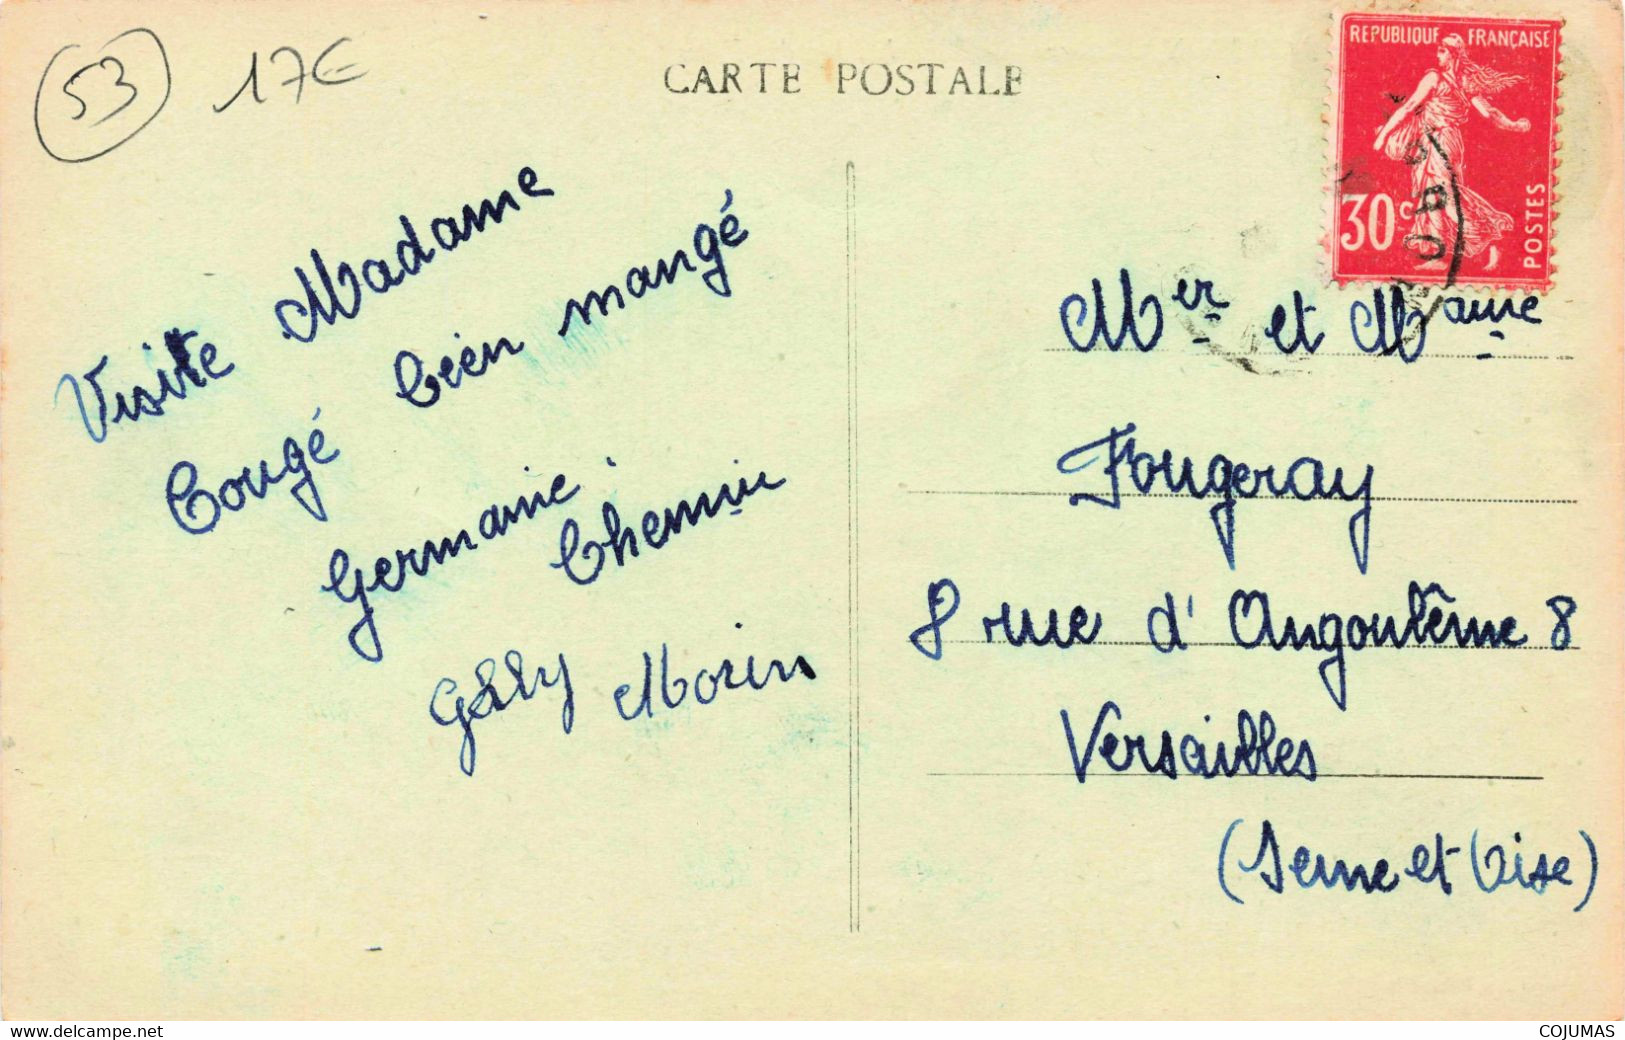 53 17€
CARTE POSTALE
REPUBLIQUE FRANÇAISE
30 c
POSTES
Visite Madame
Cougé bien mangé
Germaine.
Chemin
Morin
Mer et Mame
Fougeray
8 rue d'Angoulême 8
Versailles
(Seine et Oise)
www.delcampe.net
COJUMAS